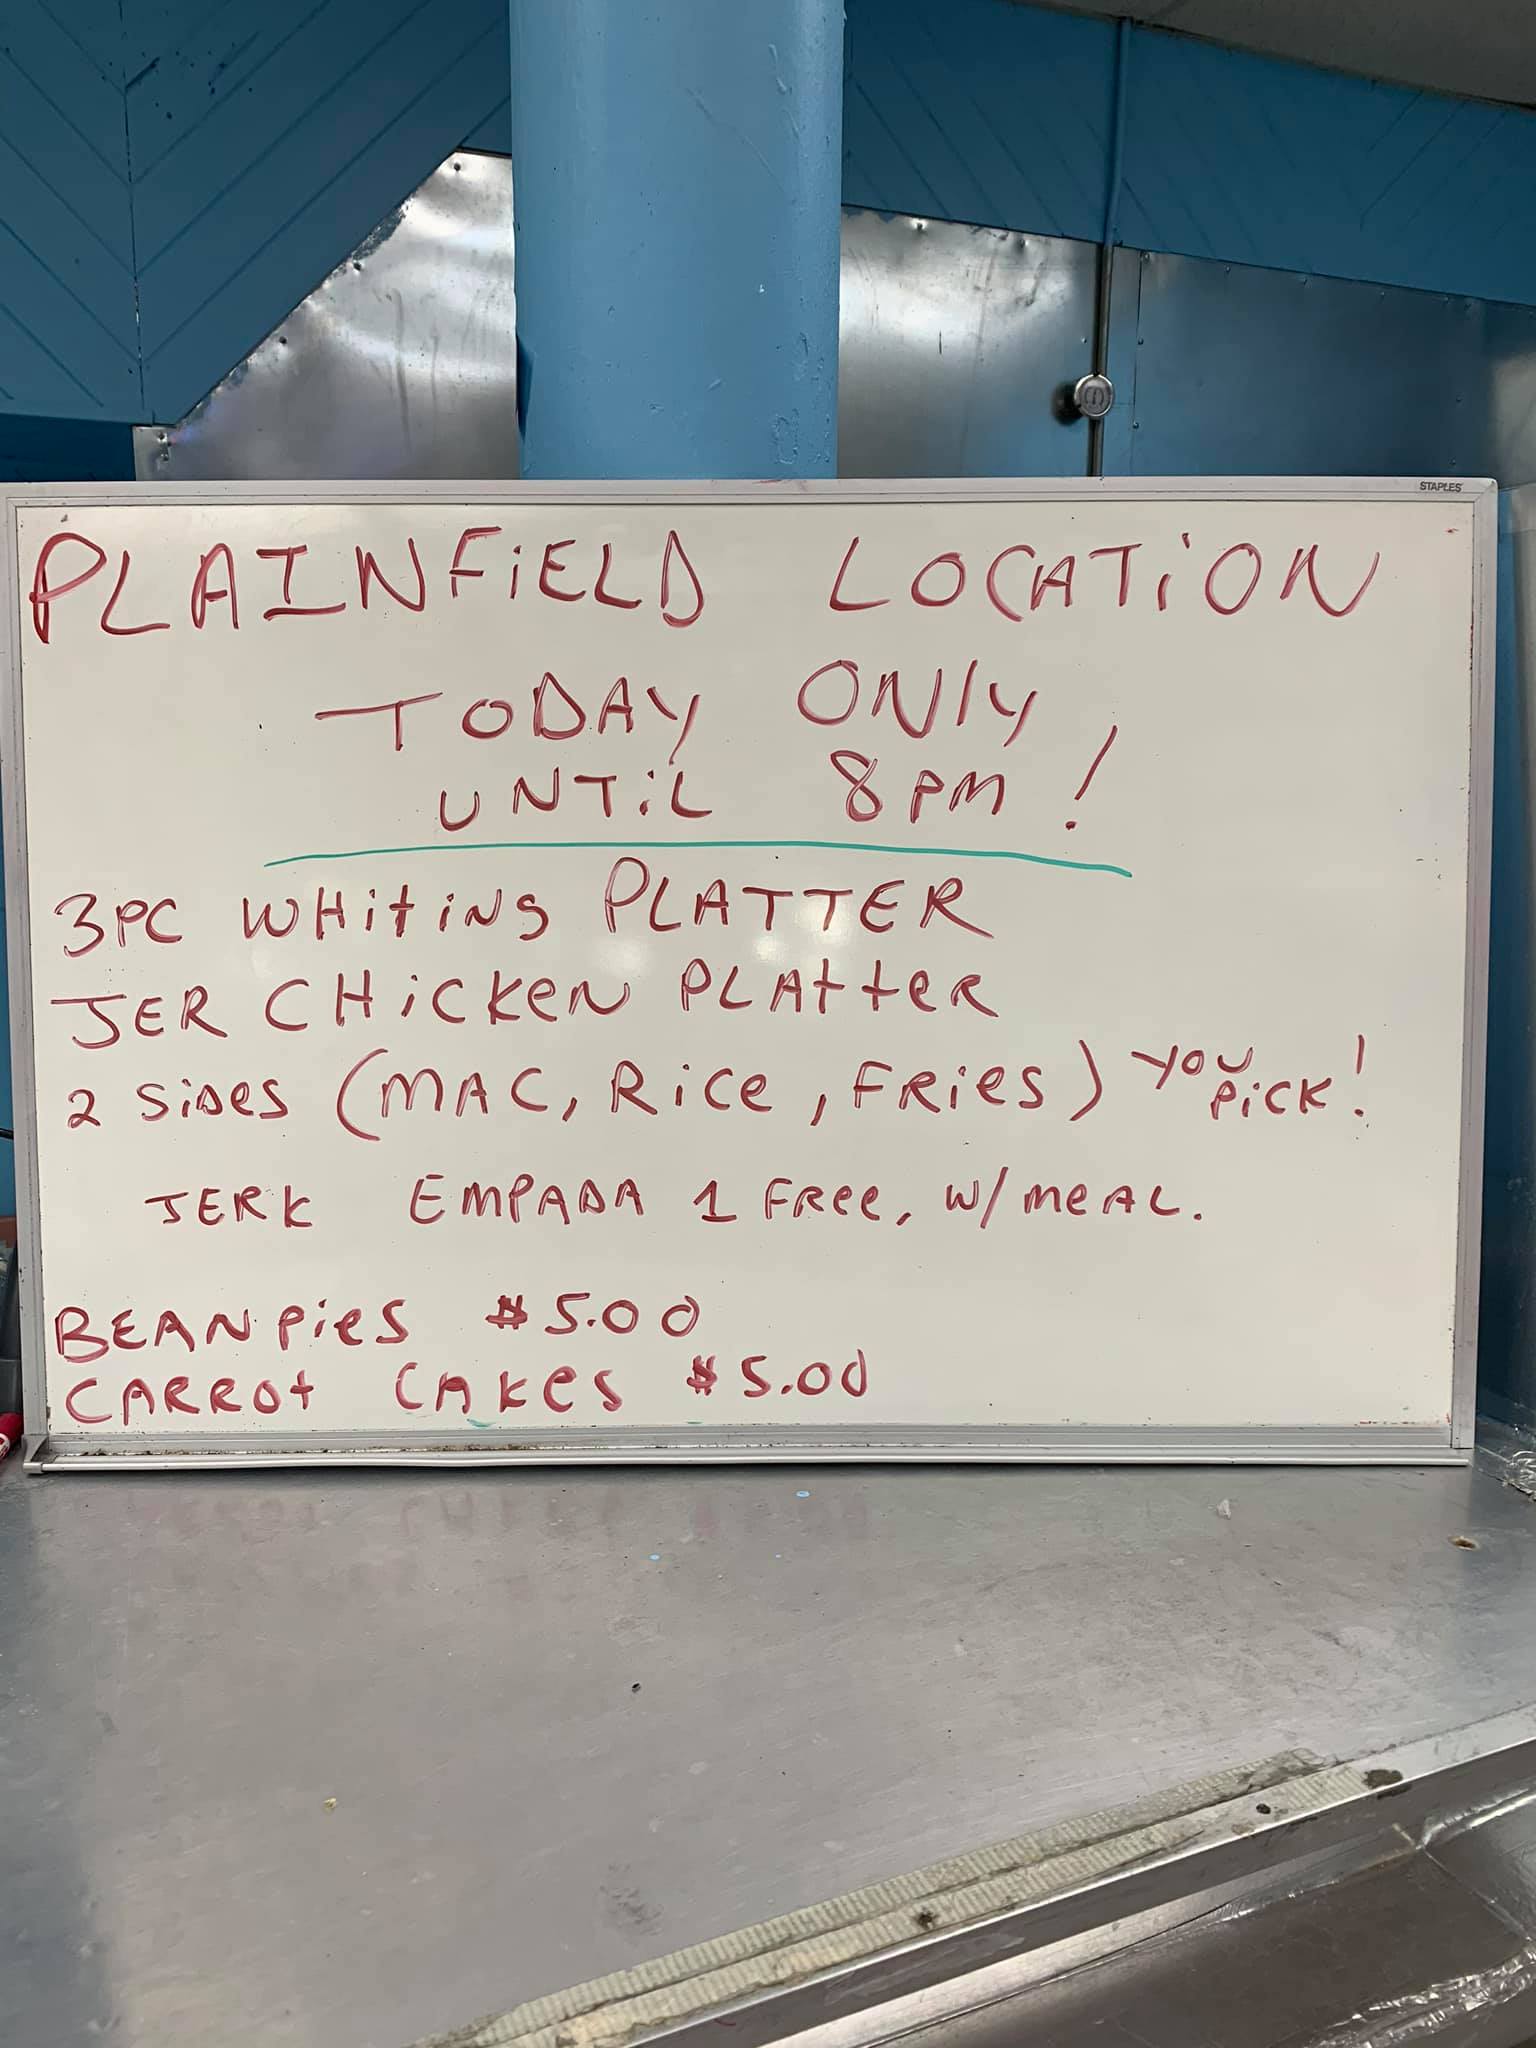 STAPLES
PLAINFiELD LOCATiON
TODAY ONLY
UNTiL 8PM!
3PC WHitiNG PLATTER
JER CHiCKeN PLAtteR
2 SiDeS (MAC, RiCe, FRieS) YOU PiCK!
JERK EMPADA 1 FRee, W/MeAL.
BEAN PieS $5.00
CARROt CAKeS $5.00